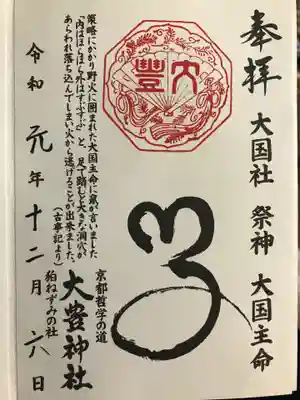 奉拝
大国社 祭神 大国主命
大豊
策略にかかり野火に囲まれた大国主命に鼠が言いました
「内はほらほら外はすぶすぶ」と、足で踏むと大きな洞穴が
あらわれ落ち込んでしまい火から逃げることが出来ました。
(古事記より)
京都哲学の道
大豊神社
狛ねずみの社
令和元年十二月六日